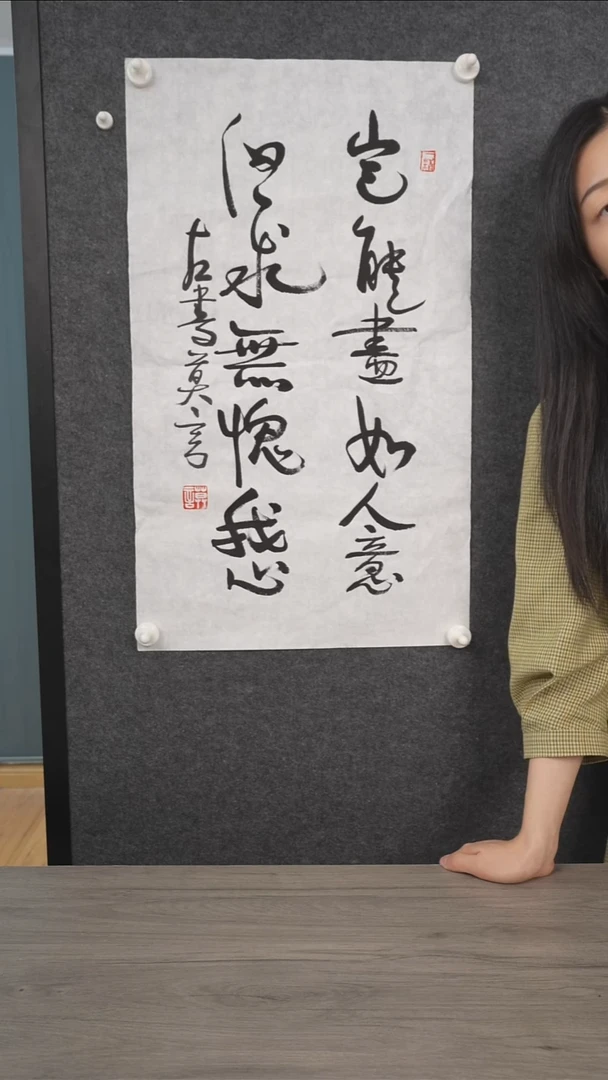 豈能盡如人意
但求無愧我心
左書莫言
莫言